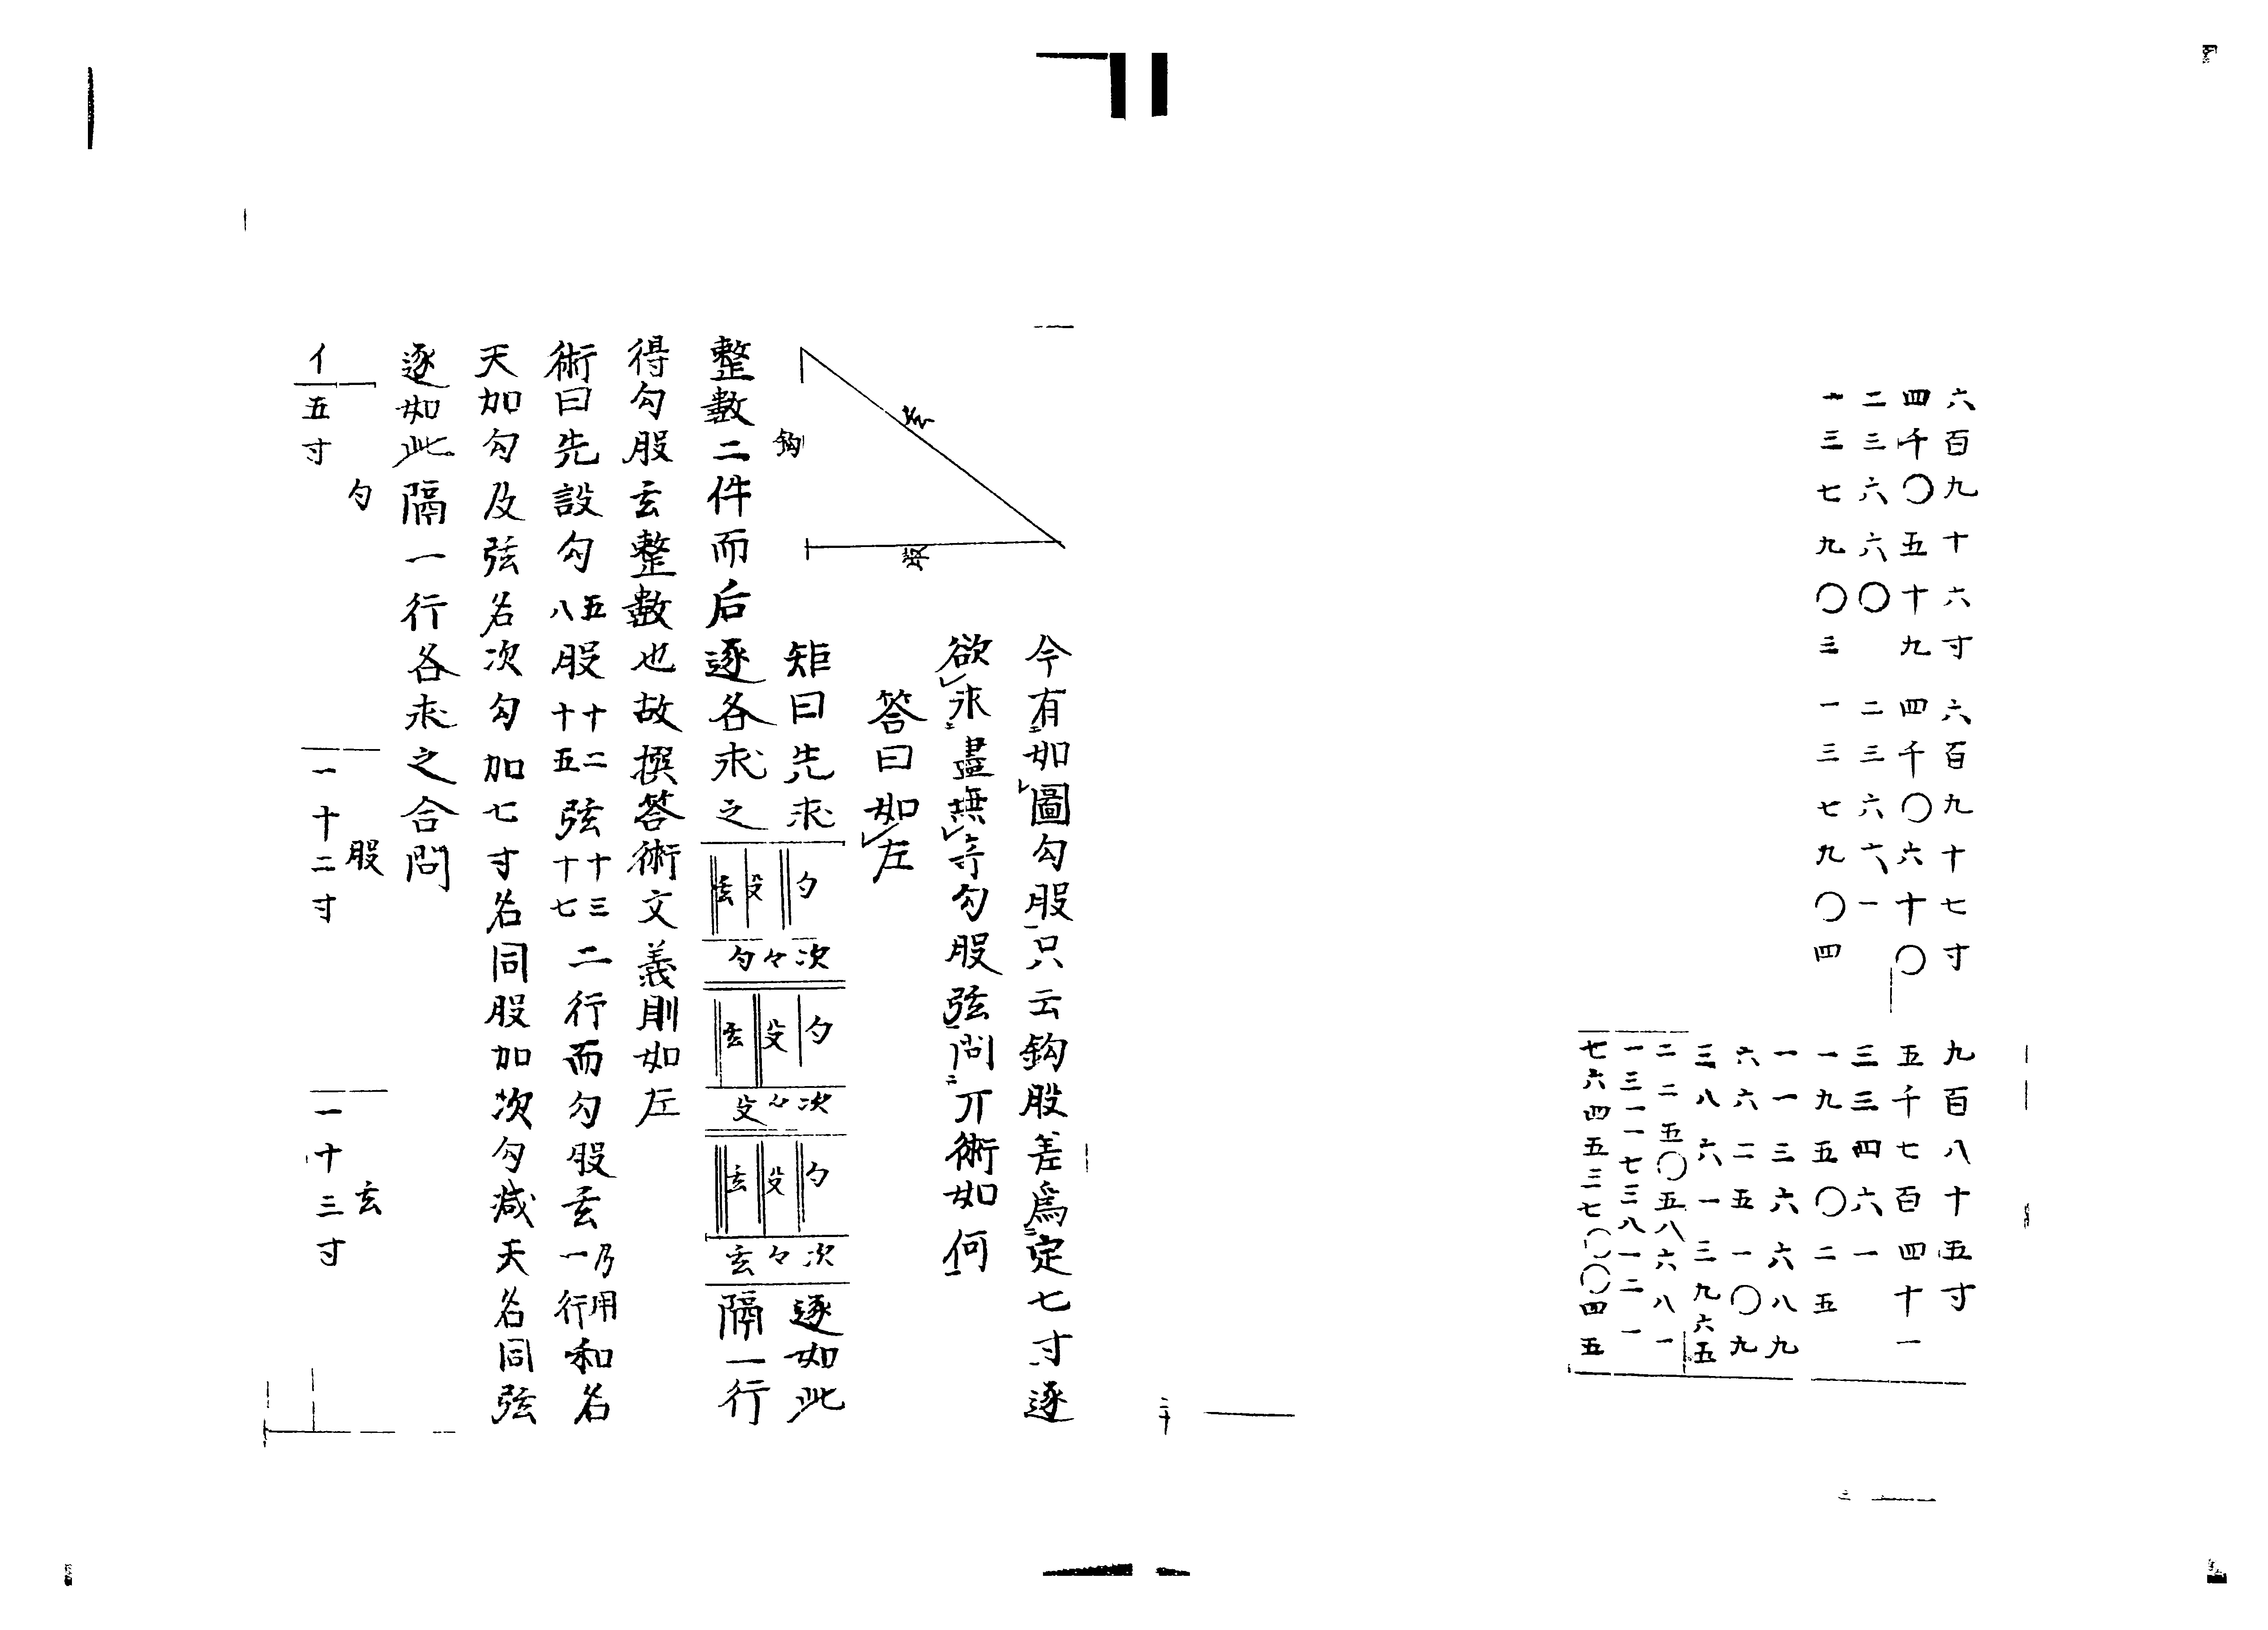 六百九十六寸
四千〇五十九
二三六六〇
一三七九〇三
六百九十七寸
四千〇六十〇
二三六六一
一三七九〇四
九百八十五寸
五千七百四十一
三三四六一
一九五〇二五
一一三六六八九
六六二五一〇九
三八六一三九六五
二二五〇五八六八一
一三一一七三八一二一
七六四五三七〇〇四五
今有如圖勾股只云鈎股差爲定七寸逐
欲求盡無奇勾股弦問丌術如何
答曰如左
玄
鈎
股
矩曰先求
勾
殳
玄
次々勾
勾
殳
玄
次々殳
勾
殳
玄
次々玄
逐如此
隔一行
整數二件而后逐各求之
得勾股玄整數也故撰答術文義則如左
術曰先設勾五八股十二十五弦十三十七二行而勾股玄乃用一行和名
天加勾及弦名次勾加七寸名同股加次勾減天名同弦
逐如此隔一行各求之合問
勾
股
玄
イ
五寸
一十二寸
一十三寸